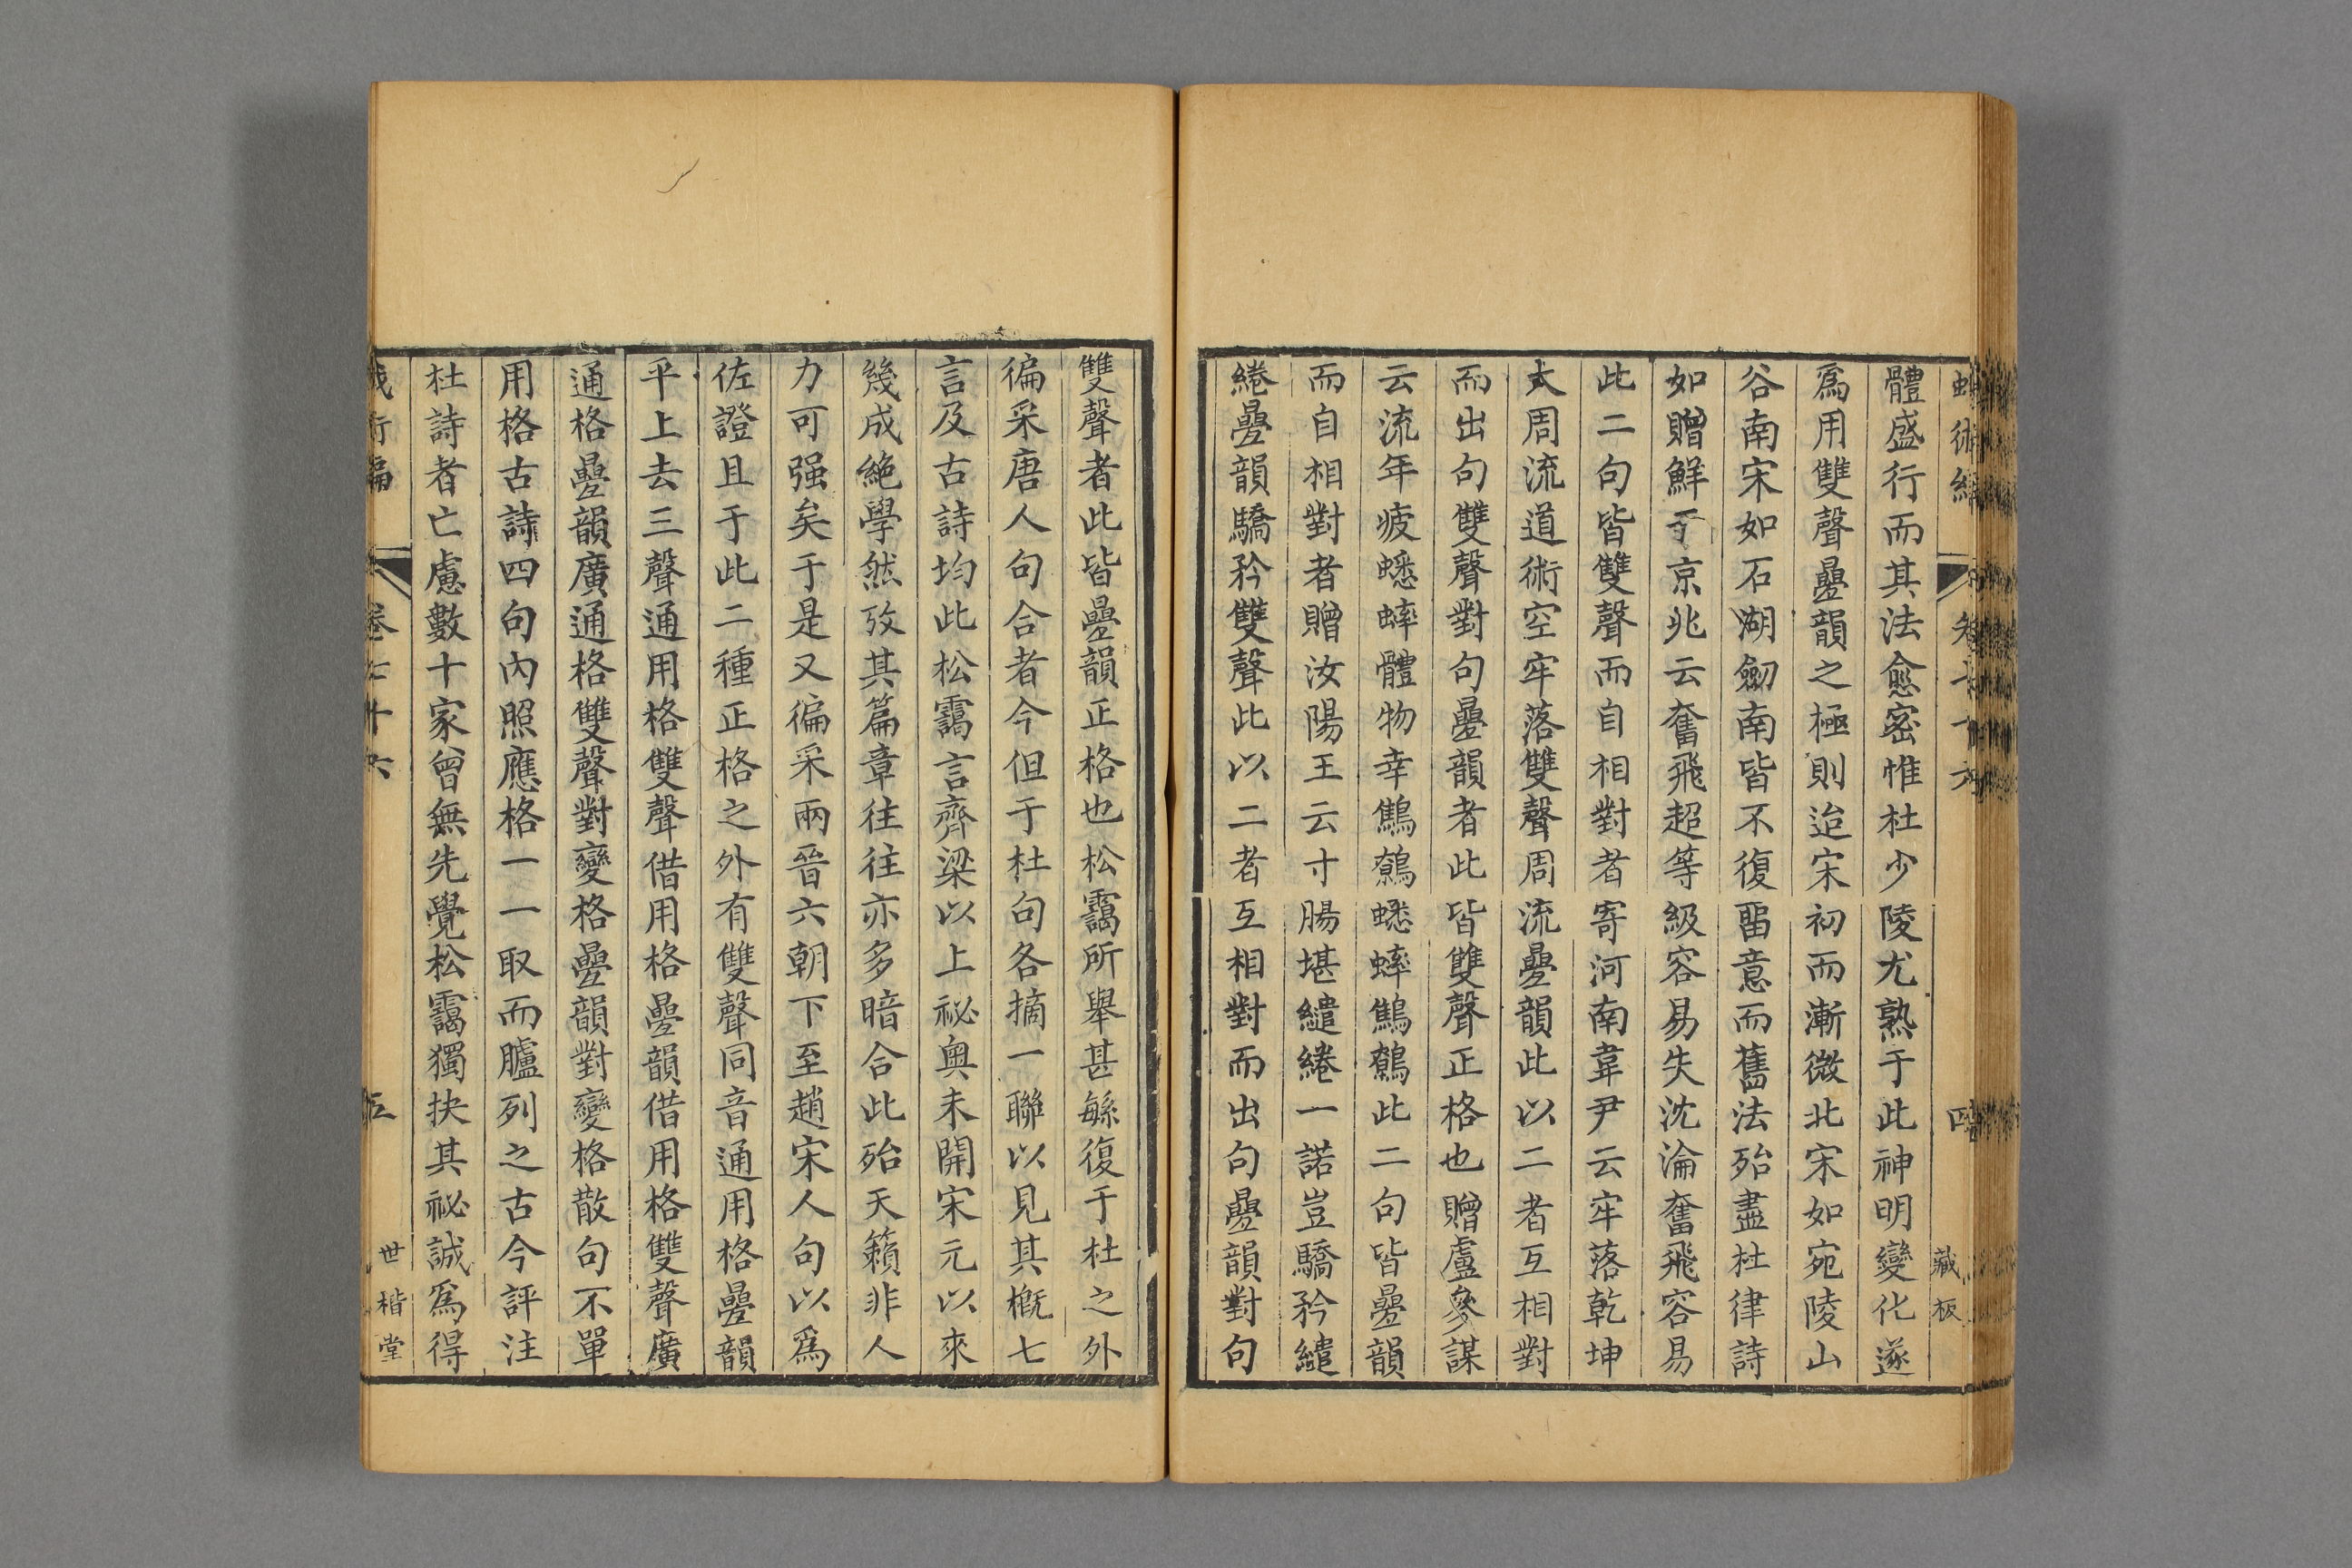 蛾術編
卷七十六
四
藏板
體盛行而其法愈密惟杜少陵尤熟于此神明變化遂
爲用雙聲疊韻之極則迨宋初而漸微北宋如宛陵山
谷南宋如石湖劒南皆不復畱意而舊法殆盡杜律詩
如贈鮮于京兆云奮飛超等級容易失沈淪奮飛容易
此二句皆雙聲而自相對者寄河南韋尹云牢落乾坤
大周流道術空牢落雙聲周流疊韻此以二者互相對
而出句雙聲對句疊韻者此皆雙聲正格也贈盧參謀
云流年疲蟋蟀體物幸鷦鷯蟋蟀鷦鷯此二句皆疊韻
而自相對者贈汝陽王云寸腸堪繾綣一諾豈驕矜繾
綣疊韻驕矜雙聲此以二者互相對而出句疊韻對句
雙聲者此皆疊韻正格也松靄所舉甚緐復于杜之外
徧采唐人句合者今但于杜句各摘一聯以見其槪七
言及古詩均此松靄言齊梁以上祕奥未開宋元以來
幾成絶學然攷其篇章往往亦多暗合此殆天籟非人
力可强矣于是又徧采兩晉六朝下至趙宋人句以爲
佐證且于此二種正格之外有雙聲同音通用格疊韻
平上去三聲通用格雙聲借用格疊韻借用格雙聲廣
通格疊韻廣通格雙聲對變格疊韻對變格散句不單
用格古詩四句內照應格一一取而臚列之古今評注
杜詩者亡慮數十家曾無先覺松靄獨抉其祕誠爲得
蛾術編
卷七十六
五
世楷堂